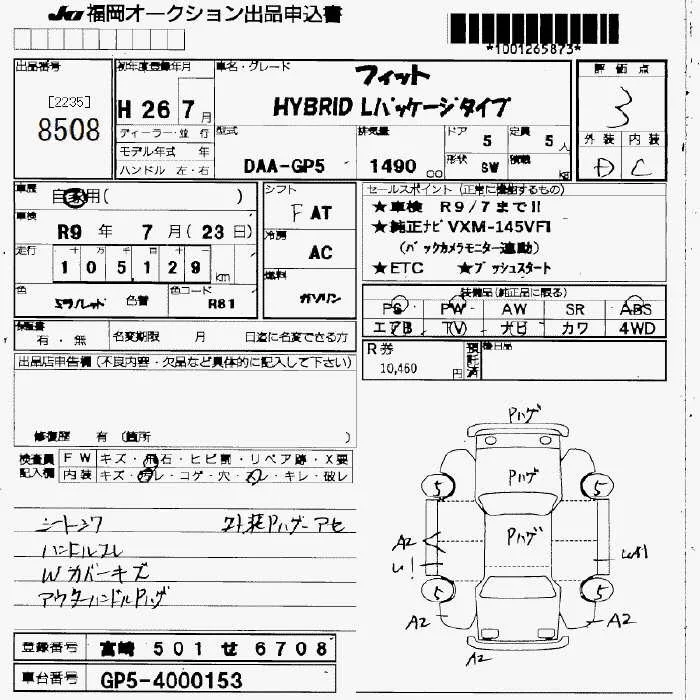 JU 福岡オークション出品申込書
*1001265873*
出品番号
[2235]
8508
初年度登録年月
H 26 7 月
ディーラー・並行
モデル年式 年
ハンドル 左・右
車名・グレード
フィット
HYBRID Lパッケージタイプ
型式
DAA-GP5
排気量
1490 cc
ドア 5
定員 5 人
形状 SW
積載 kg
評価点
3
外装 内装
D C
車歴
自家用( )
車検
R9 年 7 月 (23 日)
走行
105,129 km
色
ミラノレッド 色替
色コード
R81
シフト
F AT
冷房
AC
燃料
ガソリン
セールスポイント (正常に機能するもの)
★車検 R9/7まで!!
★純正ナビVXM-145VFI
(バックカメラモニター連動)
★ETC ★プッシュスタート
装備品(純正品に限る)
PS PW AW SR ABS
エアB TV ナビ カワ 4WD
保証書
有・無
名変期限 月 日迄に名変できる方
R券
10,460 円
預託済
後日品
出品店申告欄 (不良内容・欠品など具体的に記入して下さい)
修復歴 有 (箇所 )
検査員記入欄
FW キズ・飛石・ヒビ割・リペア跡・X要
内装 キズ・スレ・コゲ・穴・ヌレ・キレ・破レ
シートシワ 外装Pハゲーアセ
ハンドルスレ
Wカバーキズ
アウターハンドルPハゲ
Pハゲ
Pハゲ
Pハゲ
5 5
A2
5 5
A2 A2
A2
登録番号 宮崎 501 せ 6708
車台番号 GP5-4000153